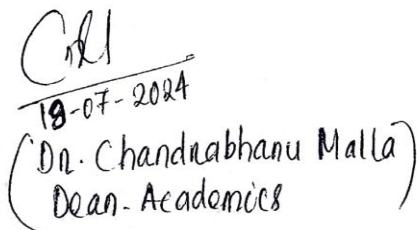 18-07-2024
(Dr. Chandrabhanu Malla)
Dean. Academics